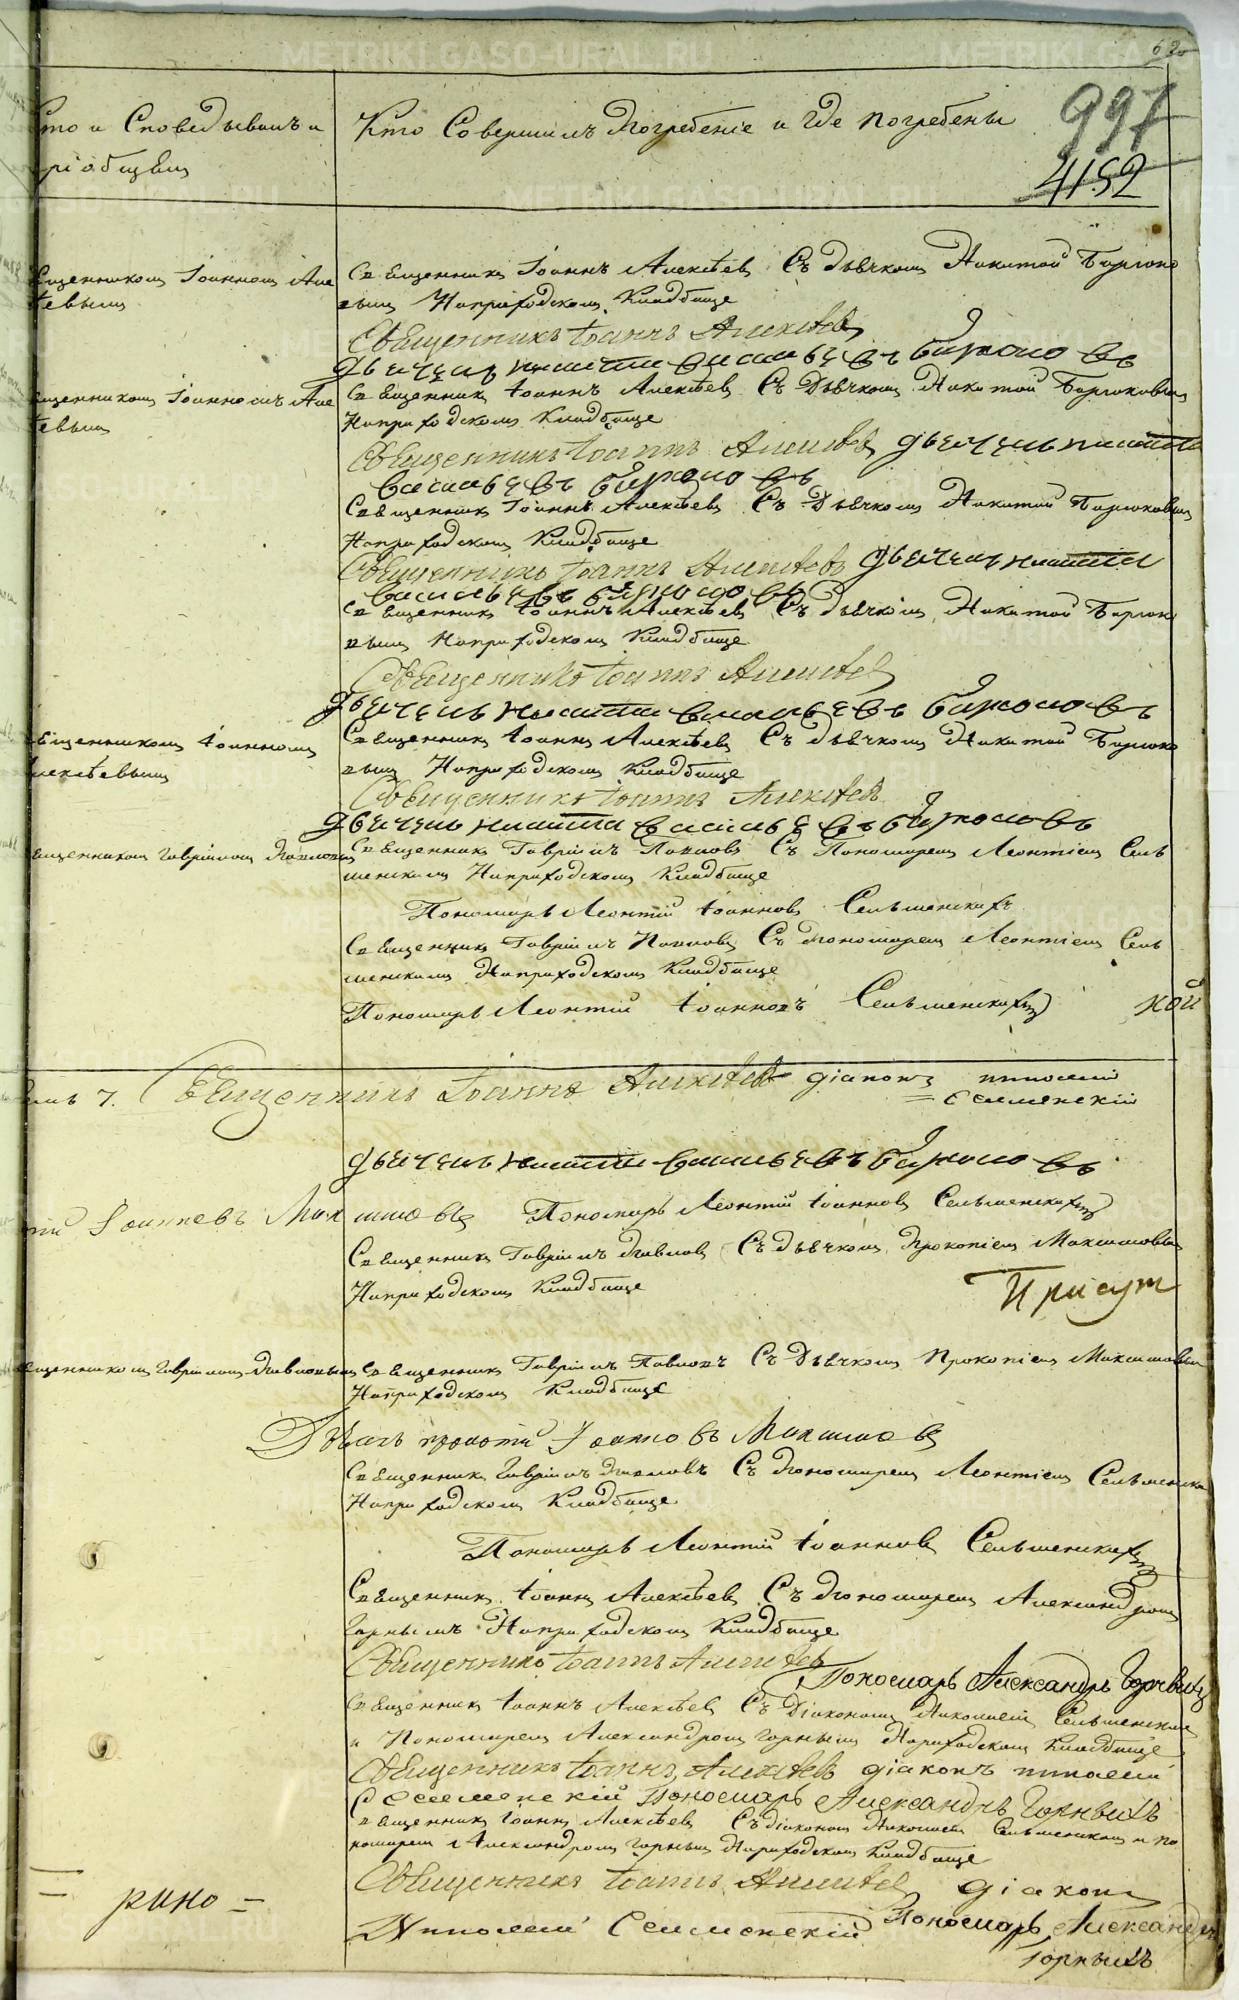 620
997
4152
Кто и Споведывалъ и
Кто Совершилъ Погребеніе и где погребены
пріобщилъ
Священникомъ Іоанномъ Але
Священникъ Іоаннъ Алексѣевъ Съ Дьячкомъ Никитой Бирюко
ѣевымъ
вымъ Наприходскомъ Кладбище
Священникъ Іоаннъ Алексѣевъ
дьячекъ никита васильевъ бирюковъ
Священникомъ Іоанномъ Але
Священникъ Іоаннъ Алексѣевъ Съ Дьячкомъ Никитой Бирюковымъ
ѣевымъ
Наприходскомъ Кладбище
Священникъ Іоаннъ Алексѣевъ дьячекъ никита
васильевъ бирюковъ
Священникъ Іоаннъ Алексѣевъ Съ Дьячкомъ Никитой Бирюковымъ
Наприходскомъ Кладбище
Священникъ Іоаннъ Алексѣевъ дьячекъ никита
васильевъ бирюковъ
Священникъ Іоаннъ Алексѣевъ Съ дьячкомъ Никитой Бирюко
вымъ Наприходскомъ Кладбище
Священникъ Іоаннъ Алексѣевъ
дьячекъ никита васильевъ бирюковъ
Священникомъ Іоанномъ
Священникъ Іоаннъ Алексѣевъ Съ дьячкомъ Никитой Бирюко
Алексѣевымъ
вымъ Наприходскомъ Кладбище
Священникъ Іоаннъ Алексѣевъ
дьячекъ никита васильевъ бирюковъ
Священникомъ Гавріиломъ Павловымъ
Священникъ Гавріилъ Павловъ Съ Пономаремъ Леонтіемъ Сель
менскимъ Наприходскомъ Кладбище
Пономарь Леонтій Іоанновъ Сельменскихъ
Священникъ Гавріилъ Павловъ Съ Пономаремъ Леонтіемъ Сель
менскимъ Наприходскомъ Кладбище
Пономарь Леонтій Іоанновъ Сельменскихъ
кой
7. Священникъ Іоаннъ Алексѣевъ діаконъ николай
Селменскій
дьячекъ никита васильевъ бирюковъ
Іоанновъ Максимовъ Пономарь Леонтій Іоанновъ Сельменскихъ
Священникъ Гавріилъ Павловъ Съ дьячкомъ Прокопіемъ Максимовымъ
Наприходскомъ Кладбище
Присут
Священникомъ Гавріиломъ Павловымъ
Священникъ Гавріилъ Павловъ Съ Дьячкомъ Прокопіемъ Максимовымъ
Наприходскомъ Кладбище
Дьячекъ Іоанновъ Максимовъ
Священникъ Гавріилъ Павловъ Съ Пономаремъ Леонтіемъ Сельменски
Наприходскомъ Кладбище
Пономарь Леонтій Іоанновъ Сельменскихъ
Священникъ Іоаннъ Алексѣевъ Съ Пономаремъ Александромъ
Горнымъ Наприходскомъ Кладбище
Священникъ Іоаннъ Алексѣевъ
Пономарь Александръ Горныхъ
Священникъ Іоаннъ Алексѣевъ Съ Діакономъ Николаемъ Сельменским
и Пономаремъ Александромъ Горнымъ Наприходскомъ Кладбище
Священникъ Іоаннъ Алексѣевъ діаконъ николай
Селменскій Пономарь Александръ Горныхъ
Священникъ Іоаннъ Алексѣевъ Съ діакономъ Николаемъ Сельменскимъ и по
номаремъ Александромъ Горнымъ Наприходскомъ Кладбище
Священникъ Іоаннъ Алексѣевъ діаконъ
рино =
Николай Селменскій Пономарь Александръ
Горныхъ
METRIKI.GASO-URAL.RU